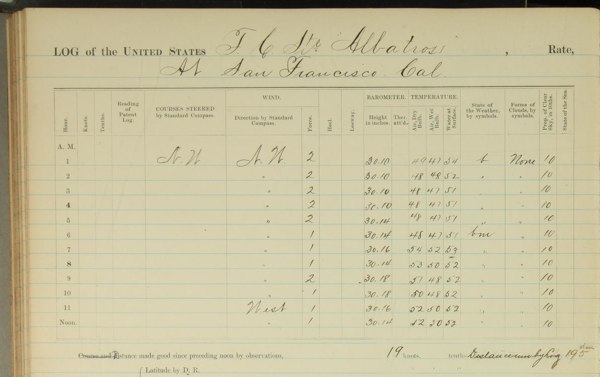 LOG of the UNITED STATES F. C. Str Albatross, Rate,
At San Francisco Cal
Hour. Knots. Tenths. Reading of Patent Log. COURSES STEERED by Standard Compass. WIND. Direction by Standard Compass. Force. Heel. Leeway. BAROMETER. Height in inches. Ther. att'd. TEMPERATURE. Air, Dry Bulb. Air, Wet Bulb. Water at Surface. State of the Weather, by symbols. Forms of Clouds, by symbols. Prop. of Clear Sky, in 10ths. State of the Sea.
A. M.
1 N W N W 2 30.10 49 47 54 b None 10
2 " 2 30.10 48 48 52 " " 10
3 " 2 30.10 48 47 51 " " 10
4 " 2 30.10 48 47 51 " " 10
5 " 2 30.14 48 47 51 " " 10
6 " 1 30.14 48 47 51 bm " 10
7 " 1 30.16 54 52 53 " " 10
8 " 1 30.14 53 50 52 " " 10
9 " 2 30.18 51 48 52 " " 10
10 " 1 30.18 50 48 52 " " 10
11 West 1 30.16 52 50 52 " " 10
Noon. " 1 30.14 52 50 52 " " 10
made good since preceding noon by observations, 19 knots, tenths Distance run by Log 195
Latitude by D. R.